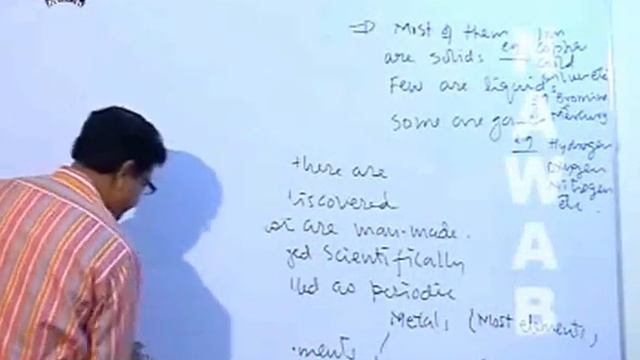 ⇒ Most of them Iron
are solids eg Copper
Gold
Silver etc
Few are liquids
eg Bromine
Mercury
Some are gas
eg Hydrogen
Oxygen
Nitrogen
etc.
there are
iscovered
are man-made.
ed Scientifically
led as periodic
Metal, (Most elements,
ments
AWAB